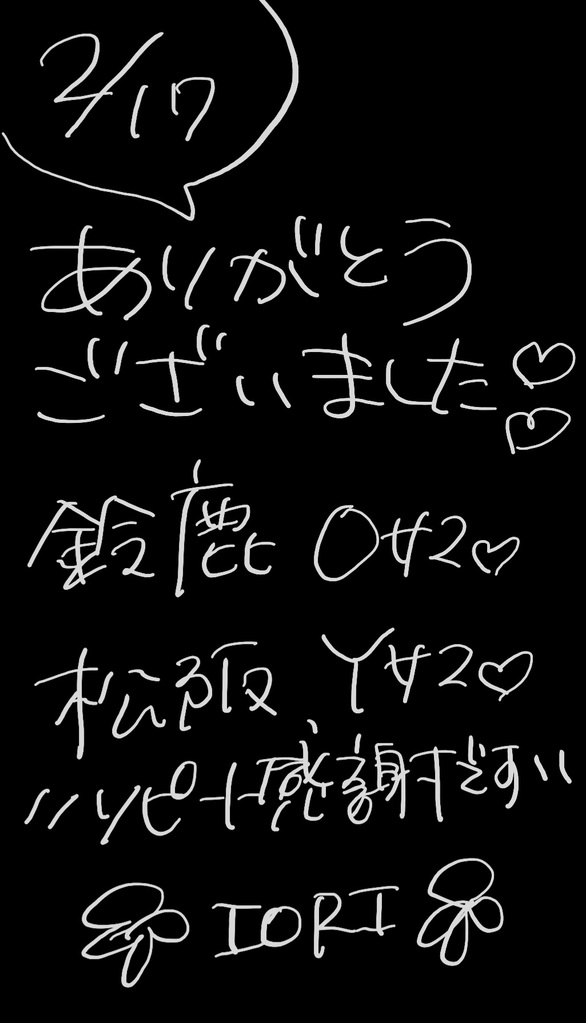 2/17
ありがとう
ございました♡♡
鈴鹿 Oサ2♡
松阪 Yサ2♡
〃リピート感謝すぎです〃
IORI